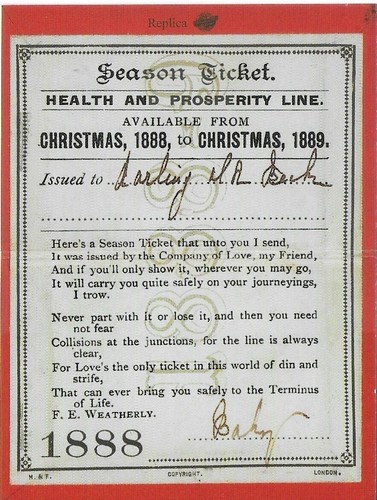 Replica
Season Ticket.
HEALTH AND PROSPERITY LINE.
AVAILABLE FROM
CHRISTMAS, 1888, to CHRISTMAS, 1889.
Issued to Darling
Here's a Season Ticket that unto you I send,
It was issued by the Company of Love, my Friend,
And if you'll only show it, wherever you may go,
It will carry you quite safely on your journeyings,
I trow.
Never part with it or lose it, and then you need
not fear
Collisions at the junctions, for the line is always
clear,
For Love's the only ticket in this world of din and
strife,
That can ever bring you safely to the Terminus
of Life.
F. E. WEATHERLY.
Baby
1888
H. & F. COPYRIGHT. LONDON.